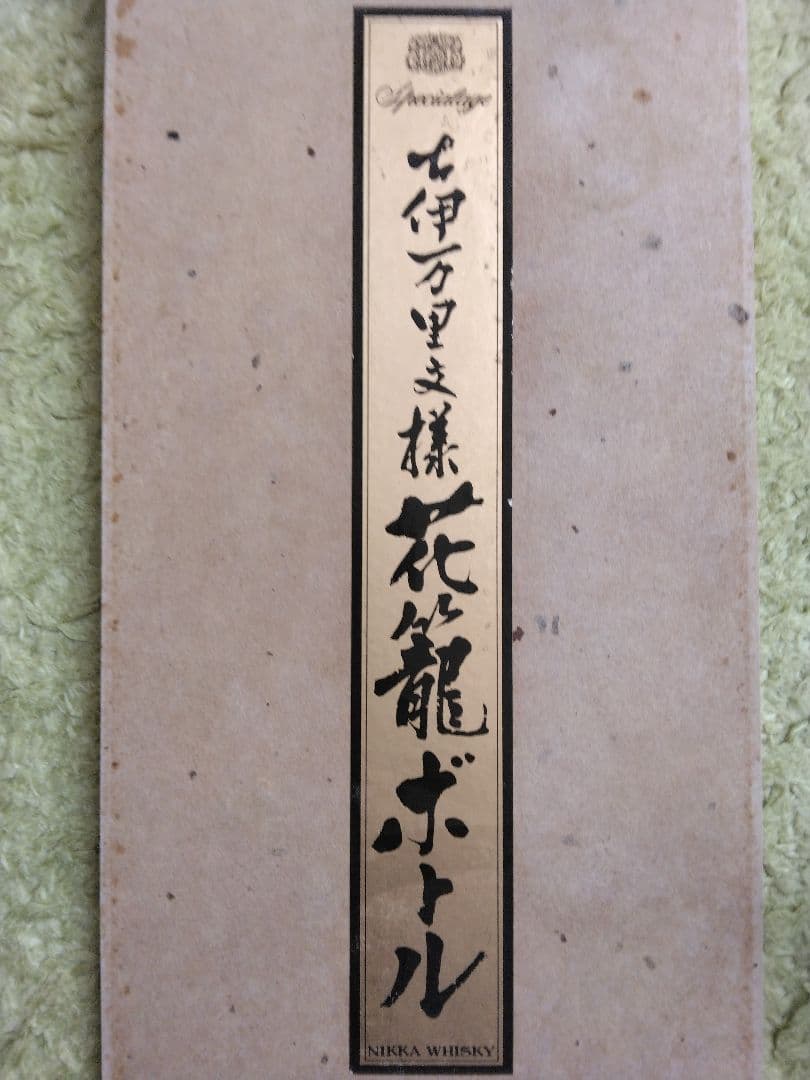 Specialage
古伊万里文様
花籠ボトル
NIKKA WHISKY